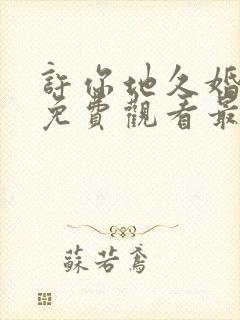 許你地久婚
免費觀看最
蘇若鳶